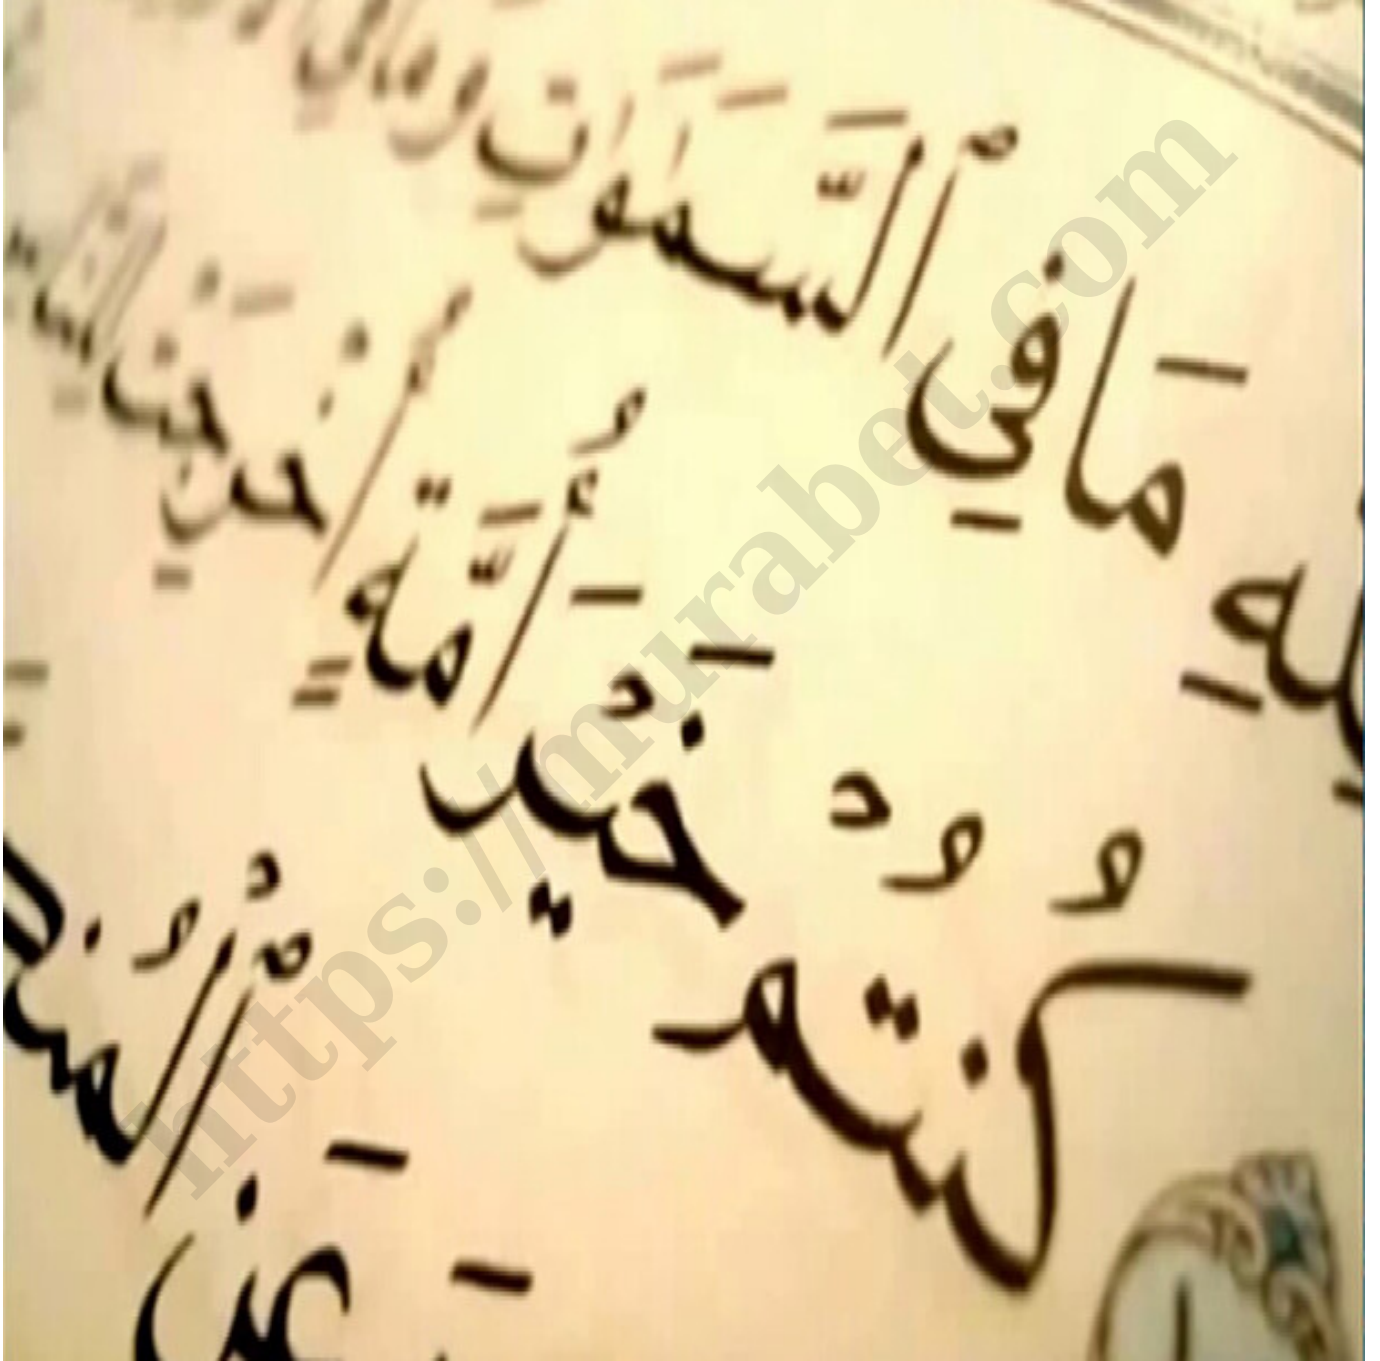 مَا فِي ٱلسَّمَـٰوَٰتِ وَمَا فِي
كُنتُمْ خَيْرَ أُمَّةٍ أُخْرِجَتْ
عَنِ ٱلْمُنكَ
https://murabet.com